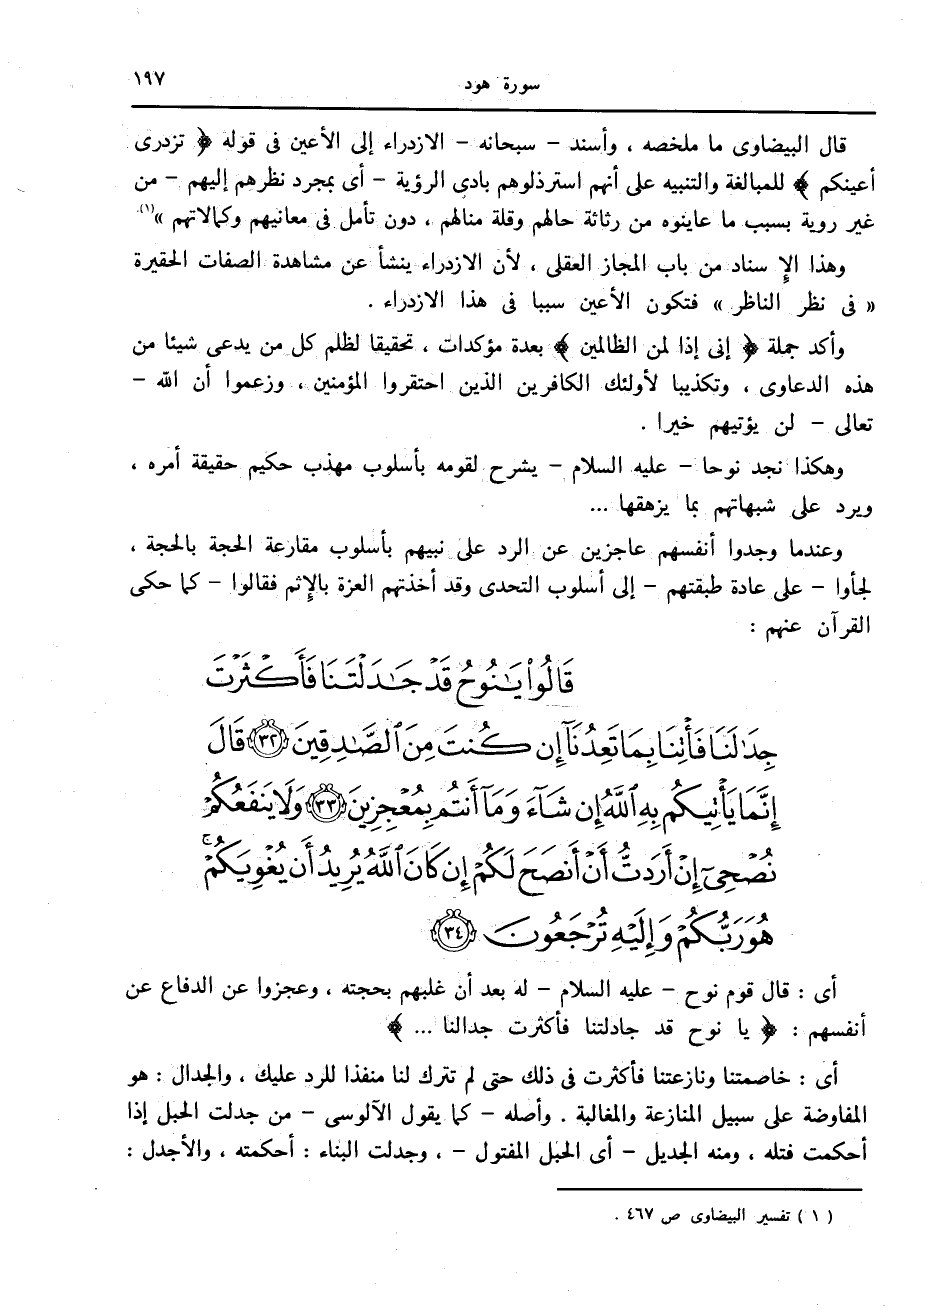 سورة هود
١٩٧
قال البيضاوى ما ملخصه ، وأسند – سبحانه – الازدراء إلى الأعين فى قوله ﴿ تزدرى
أعينكم ﴾ للمبالغة والتنبيه على أنهم استرذلوهم بادى الرؤية – أى بمجرد نظرهم إليهم – من
غير روية بسبب ما عاينوه من رثاثة حالهم وقلة منالهم ، دون تأمل فى معانيهم وكمالاتهم »(١).
وهذا الإ سناد من باب المجاز العقلى ، لأن الازدراء ينشأ عن مشاهدة الصفات الحقيرة
« فى نظر الناظر » فتكون الأعين سببا فى هذا الازدراء .
وأكد جملة ﴿ إنى إذا لمن الظالمين ﴾ بعدة مؤكدات ، تحقيقا لظلم كل من يدعى شيئا من
هذه الدعاوى ، وتكذيبا لأولئك الكافرين الذين احتقروا المؤمنين ، وزعموا أن الله –
تعالى – لن يؤتيهم خيرا .
وهكذا نجد نوحا – عليه السلام – يشرح لقومه بأسلوب مهذب حكيم حقيقة أمره ،
ويرد على شبهاتهم بما يزهقها ...
وعندما وجدوا أنفسهم عاجزين عن الرد على نبيهم بأسلوب مقارعة الحجة بالحجة ،
لجأوا – على عادة طبقتهم – إلى أسلوب التحدى وقد أخذتهم العزة بالإثم فقالوا – كما حكى
القرآن عنهم :
قَالُوا۟ يَٰنُوحُ قَدْ جَٰدَلْتَنَا فَأَكْثَرْتَ
جِدَٰلَنَا فَأْتِنَا بِمَا تَعِدُنَآ إِن كُنتَ مِنَ ٱلصَّٰدِقِينَ ﴿٣٢﴾ قَالَ
إِنَّمَا يَأْتِيكُم بِهِ ٱللَّهُ إِن شَآءَ وَمَآ أَنتُم بِمُعْجِزِينَ ﴿٣٣﴾ وَلَا يَنفَعُكُمْ
نُصْحِىٓ إِنْ أَرَدتُّ أَنْ أَنصَحَ لَكُمْ إِن كَانَ ٱللَّهُ يُرِيدُ أَن يُغْوِيَكُمْ ۚ
هُوَ رَبُّكُمْ وَإِلَيْهِ تُرْجَعُونَ ﴿٣٤﴾
أى : قال قوم نوح – عليه السلام – له بعد أن غلبهم بحجته ، وعجزوا عن الدفاع عن
أنفسهم : ﴿ يا نوح قد جادلتنا فأكثرت جدالنا ... ﴾
أى : خاصمتنا ونازعتنا فأكثرت فى ذلك حتى لم تترك لنا منفذا للرد عليك ، والجدال : هو
المفاوضة على سبيل المنازعة والمغالبة . وأصله – كما يقول الآلوسى – من جدلت الحبل إذا
أحكمت فتله ، ومنه الجديل – أى الحبل المفتول – ، وجدلت البناء : أحكمته ، والأجدل :
( ١ ) تفسير البيضاوى ص ٤٦٧ .